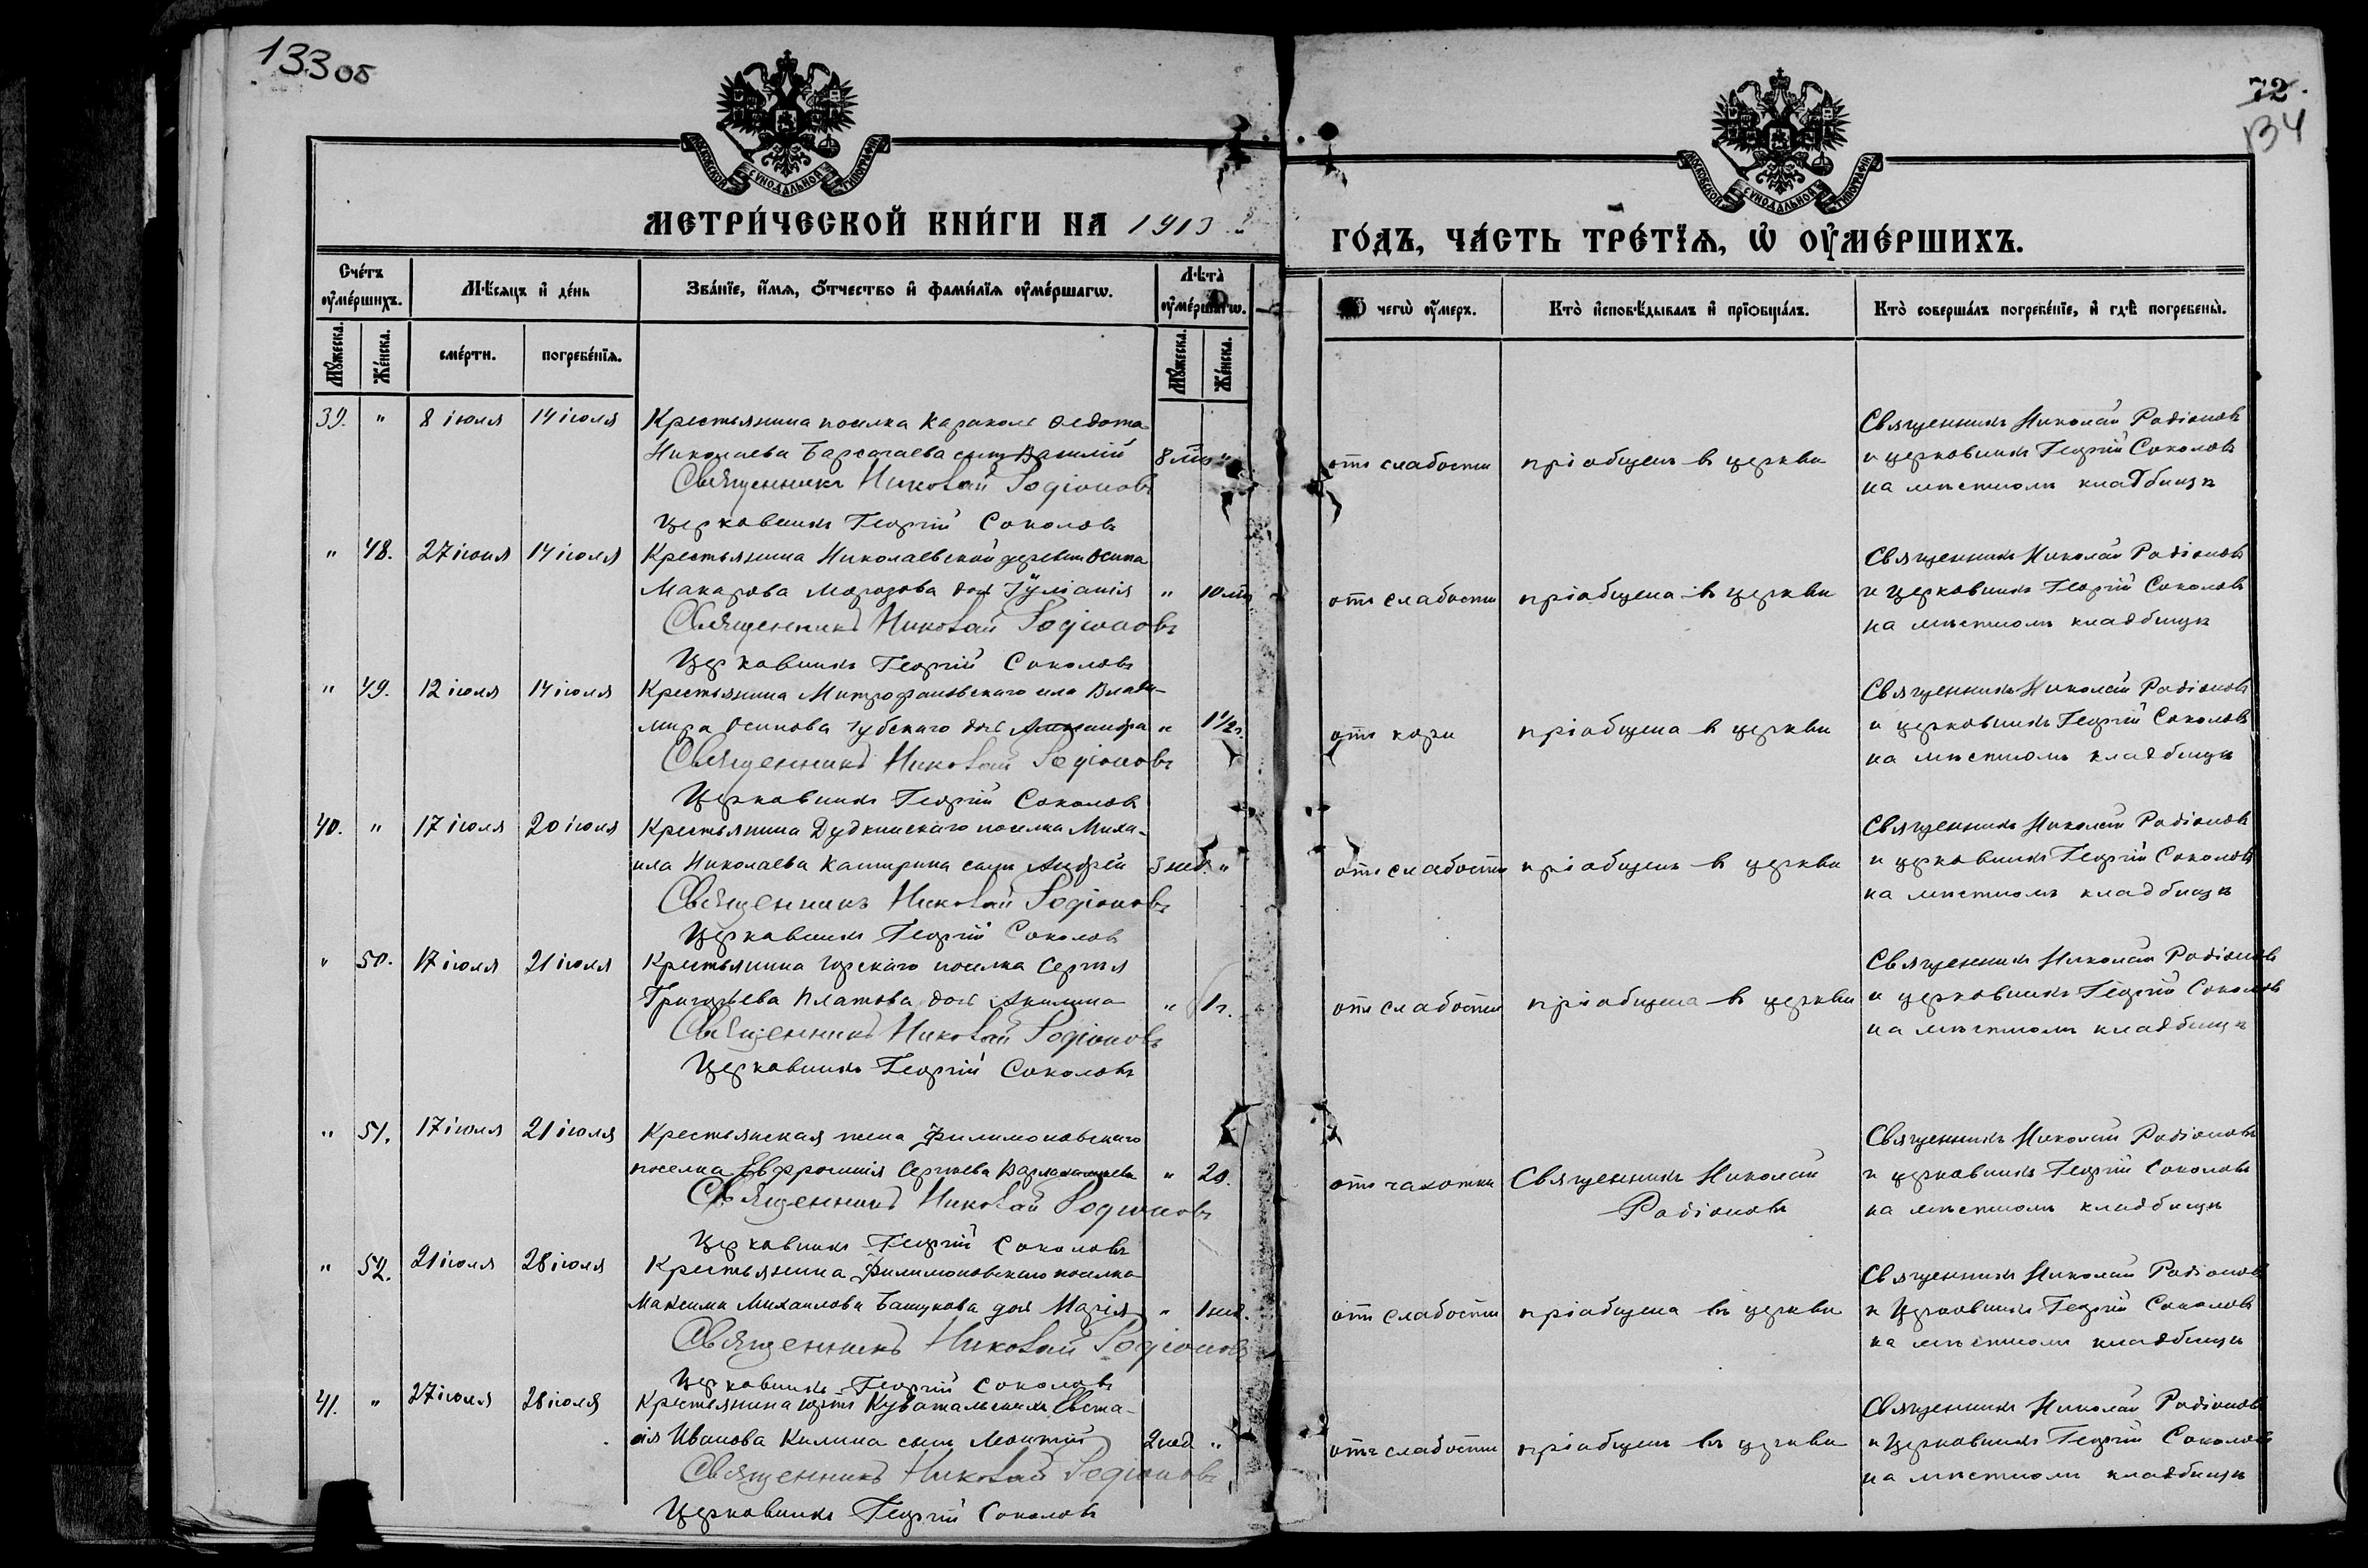 133 об
72.
134
МОСКОВСКОЙ СѴНОДАЛЬНОЙ ТИПОГРАФІИ
МОСКОВСКОЙ СѴНОДАЛЬНОЙ ТИПОГРАФІИ
МЕТРИ́ЧЕСКОЙ КНИ́ГИ НА 1913
ГО́ДЪ, ЧА́СТЬ ТРЕ́ТЇѦ, Ѡ҆ ОУ҆МЕ́РШИХЪ.
Сче́тъ оу҆ме́ршихъ.
Мѣ́сѧцъ и҆ де́нь
Зва́нїе, и҆́мѧ, ѻ҆́тчество и҆ фами́лїѧ оу҆ме́ршагѡ.
Лѣ́та̀ оу҆ме́ршагѡ.
чегѡ̀ оу҆́меръ.
Кто̀ и҆сповѣ́дывалъ и҆ прїѡбща́лъ.
Кто̀ соверша́лъ погребе́нїе, и҆ гдѣ̀ погребены̀.
Мꙋ́жеска.
Же́нска.
сме́рти.
погребе́нїѧ.
Мꙋ́жеска.
Же́нска.
39. " 8 іюля 14 іюля Крестьянина поселка Караколъ Ѳедота
Николаева Барсагаева сынъ Василій 8 "
Священникъ Николай Родіоновъ
Церковникъ Георгій Соколовъ
отъ слабости пріобщенъ въ церкви
Священникъ Николай Родіоновъ
и церковникъ Георгій Соколовъ
на мѣстномъ кладбищѣ
" 48. 27 іюня 14 іюля Крестьянина Николаевской деревни Осипа
Макарова Морозова дочь Іуліанія " 10
Священникъ Николай Родіоновъ
Церковникъ Георгій Соколовъ
отъ слабости пріобщена въ церкви
Священникъ Николай Родіоновъ
и церковникъ Георгій Соколовъ
на мѣстномъ кладбищѣ
" 49. 12 іюля 14 іюля Крестьянина Митрофановскаго села Влади-
мира Осипова Губскаго дочь Александра " 1 1/2 г.
Священникъ Николай Родіоновъ
Церковникъ Георгій Соколовъ
отъ кори пріобщена въ церкви
Священникъ Николай Родіоновъ
и церковникъ Георгій Соколовъ
на мѣстномъ кладбищѣ
40. " 17 іюля 20 іюля Крестьянина Дудкинскаго поселка Миха-
ила Николаева Каширина сынъ Андрей 3 нед. "
Священникъ Николай Родіоновъ
Церковникъ Георгій Соколовъ
отъ слабости пріобщенъ въ церкви
Священникъ Николай Родіоновъ
и церковникъ Георгій Соколовъ
на мѣстномъ кладбищѣ
" 50. 17 іюля 21 іюля Крестьянина Горскаго поселка Сергѣя
Григорьева Платова дочь Акилина " 1 г.
Священникъ Николай Родіоновъ
Церковникъ Георгій Соколовъ
отъ слабости пріобщена въ церкви
Священникъ Николай Родіоновъ
и церковникъ Георгій Соколовъ
на мѣстномъ кладбищѣ
" 51. 17 іюля 21 іюля Крестьянская жена Филимоновскаго
поселка Евфросинія Сергѣева " 20.
Священникъ Николай Родіоновъ
Церковникъ Георгій Соколовъ
отъ чахотки Священникъ Николай
Родіоновъ
Священникъ Николай Родіоновъ
и церковникъ Георгій Соколовъ
на мѣстномъ кладбищѣ
" 52. 21 іюля 28 іюля Крестьянина Филимоновскаго поселка
Максима Михаилова Башукова дочь Марія " 1 нед.
Священникъ Николай Родіоновъ
Церковникъ Георгій Соколовъ
отъ слабости пріобщена въ церкви
Священникъ Николай Родіоновъ
и Церковникъ Георгій Соколовъ
на мѣстномъ кладбищѣ
41. " 27 іюля 28 іюля Крестьянина юртъ Куватальскихъ Евста-
ѳія Иванова Килина сынъ 2 нед "
Священникъ Николай Родіоновъ
Церковникъ Георгій Соколовъ
отъ слабости пріобщенъ въ церкви
Священникъ Николай Родіоновъ
и Церковникъ Георгій Соколовъ
на мѣстномъ кладбищѣ